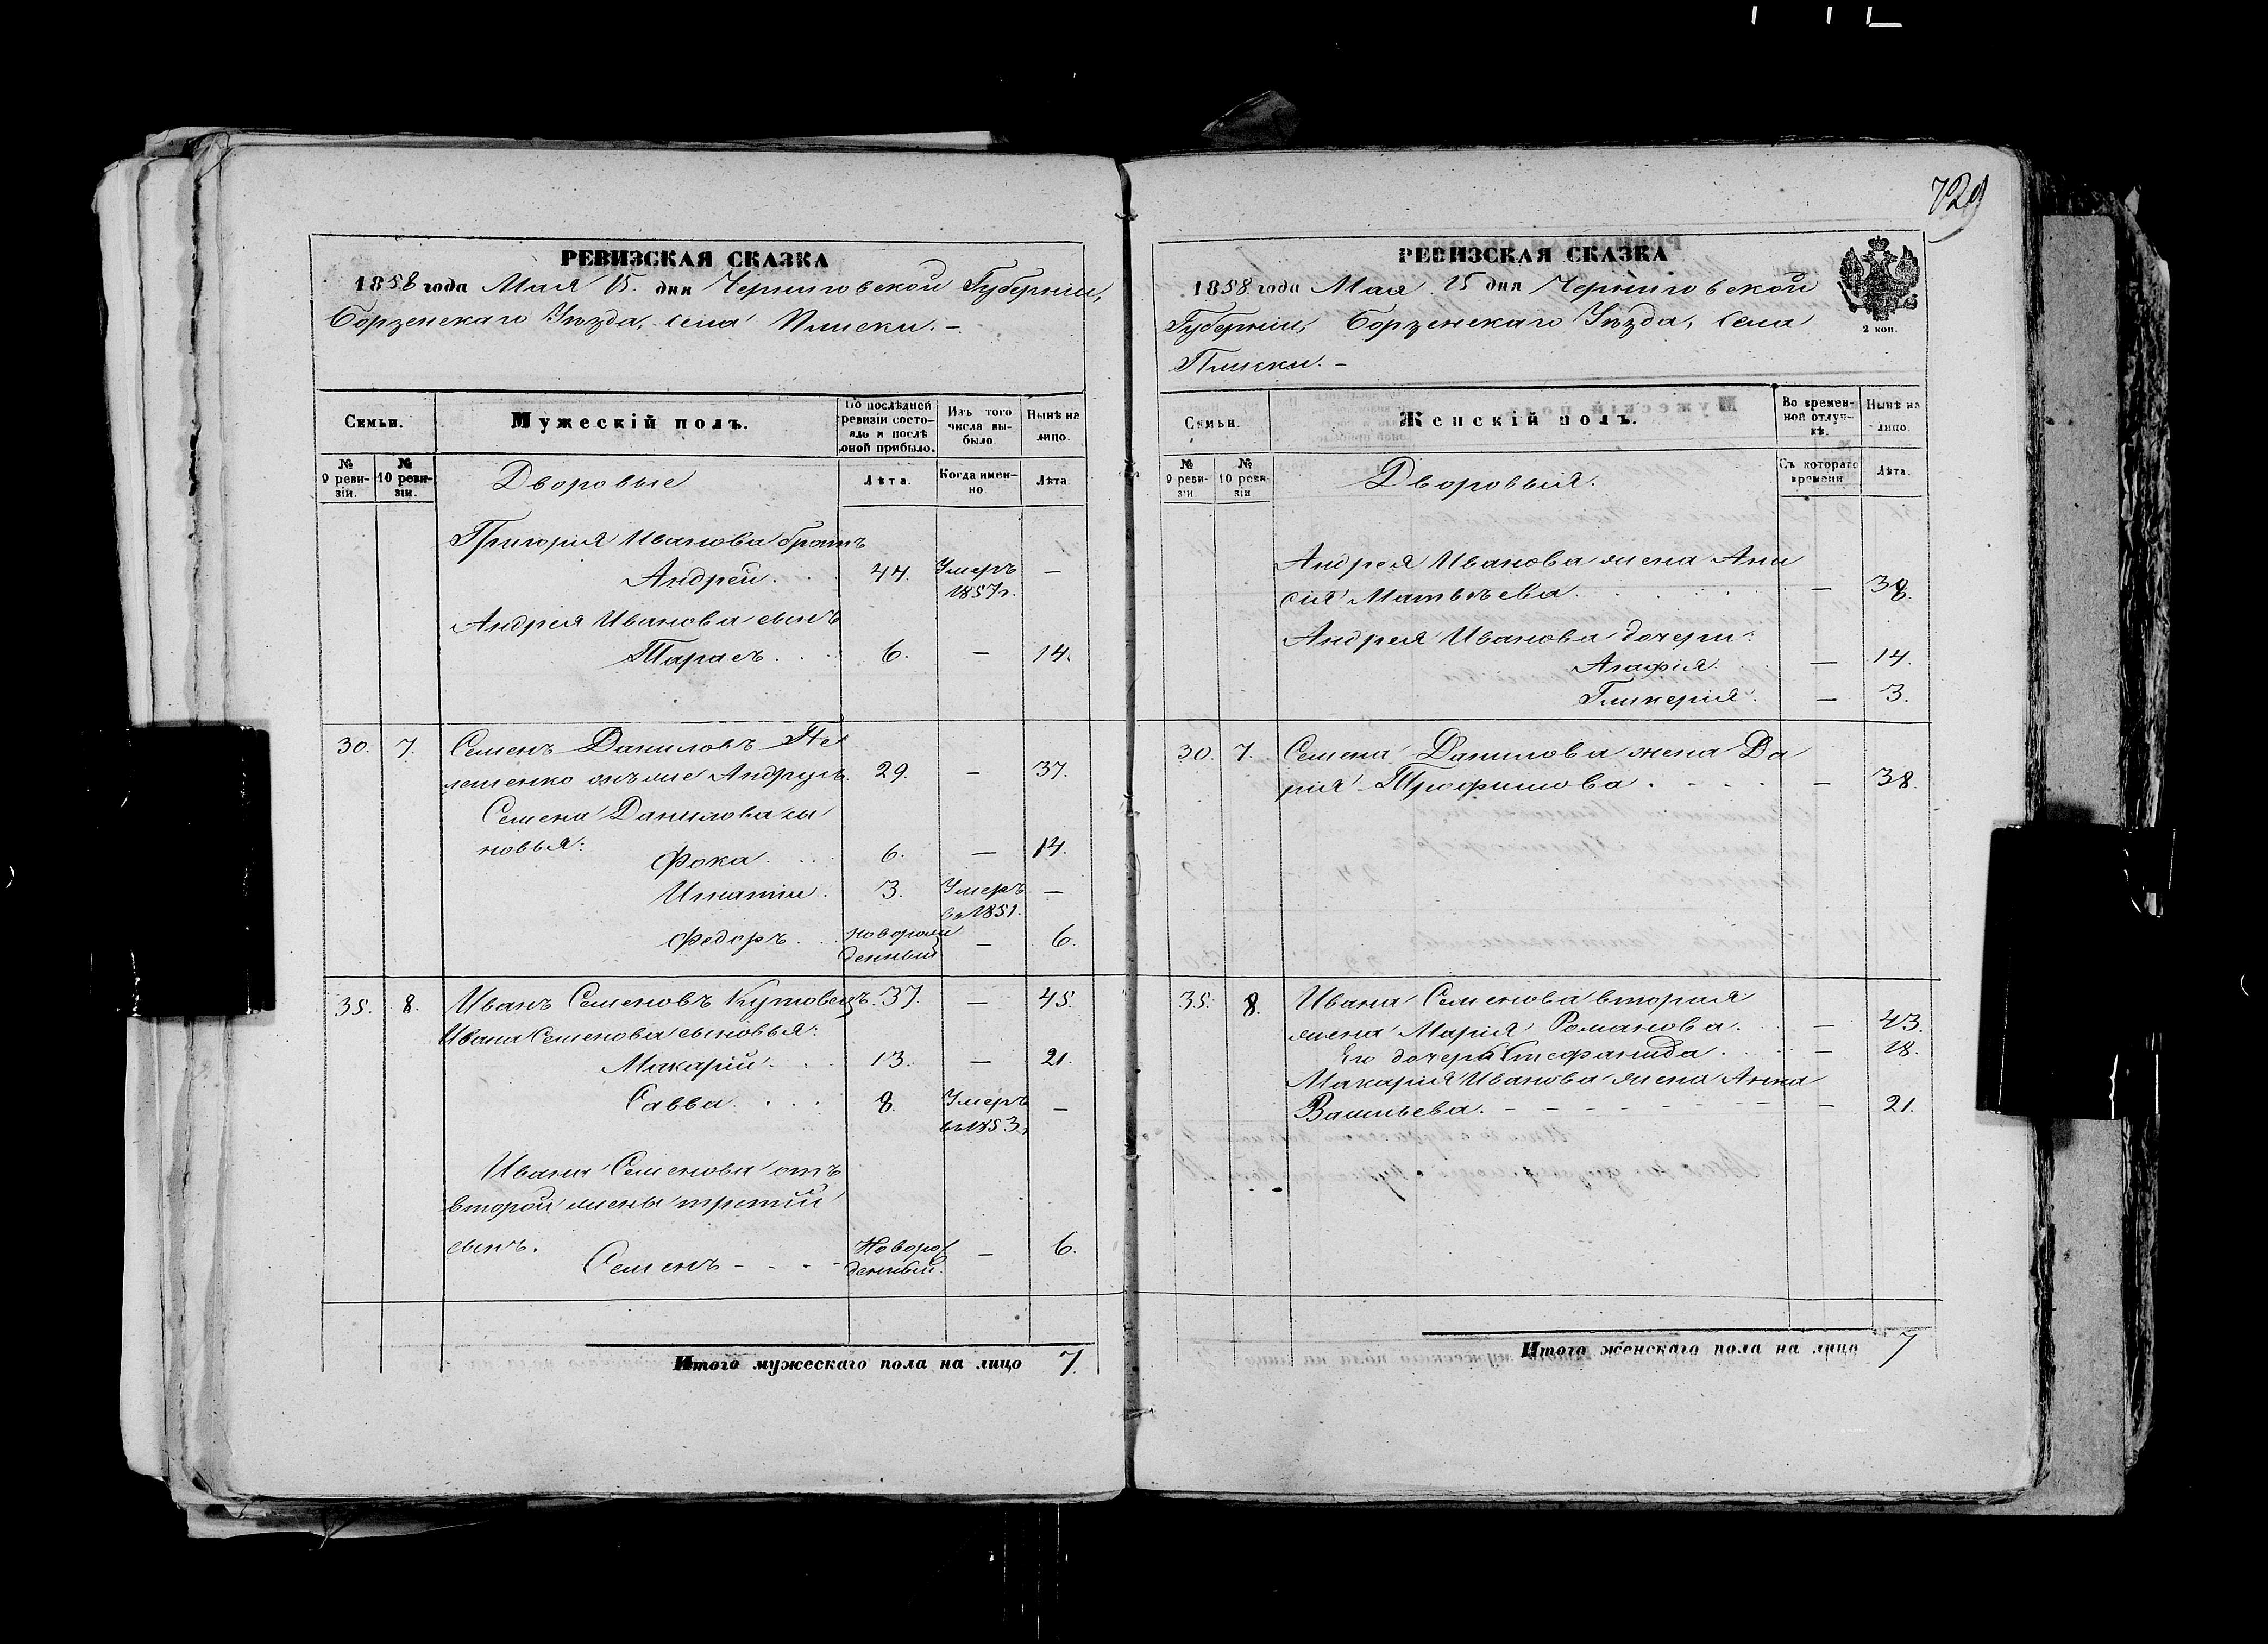 729
РЕВИЗСКАЯ СКАЗКА
1858 года Мая 15. дня Черниговской Губерніи,
Борзенскаго Уѣзда, села Плиски. –
Семьи.
Мужескій полъ.
По послѣдней ревизіи состояло и послѣ оной прибыло.
Изъ того числа выбыло.
Нынѣ на лицо.
№ 9 ревизіи.
№ 10 ревизіи.
Дворовые
Лѣта.
Когда именно
Лѣта
Григорія Иванова братъ
Андрей. 44. Умеръ 1857 г. —
Андрея Иванова сынъ
Тарасъ. 6. — 14.
30. 7. Семенъ Даниловъ Пе
лешенко онъ же Андрусь. 29. — 37.
Семена Данилова сы
новья:
Фока. 6. — 14.
Игнатій. 3. Умеръ въ 1851. —
Федоръ. новорож денный — 6.
35. 8. Иванъ Семеновъ Кутовецъ. 37. — 45.
Ивана Семенова сыновья:
Макарій. 13. — 21.
Савва. 8. Умеръ въ 1853 г —
Ивана Семенова отъ
второй жены третій
сынъ.
Семенъ - - - Новорож денный. — 6.
Итого мужескаго пола на лицо 7.
РЕВИЗСКАЯ СКАЗКА
1858 года Мая 15 дня Черниговской
Губерніи, Борзенскаго Уѣзда, Села
Плиски. –
2 коп.
Семьи.
Женскій полъ.
Во временной отлучкѣ.
Нынѣ на лицо
№ 9 ревизіи
№ 10 ревизіи
Дворовыя.
Съ котораго времени
Лѣта.
Андрея Иванова жена Ани
сія Матвѣева. — 38.
Андрея Иванова дочери:
Агафія. — 14.
Гликерія. — 3.
30. 7. Семена Данилова жена Да
рія Трофимова. — 38.
35. 8. Ивана Семенова вторая
жена Марія Романова. — 43.
Его дочери Стефанида. — 18.
Макарія Иванова жена Анна
Васильева. — 21.
Итого женскаго пола на лицо 7